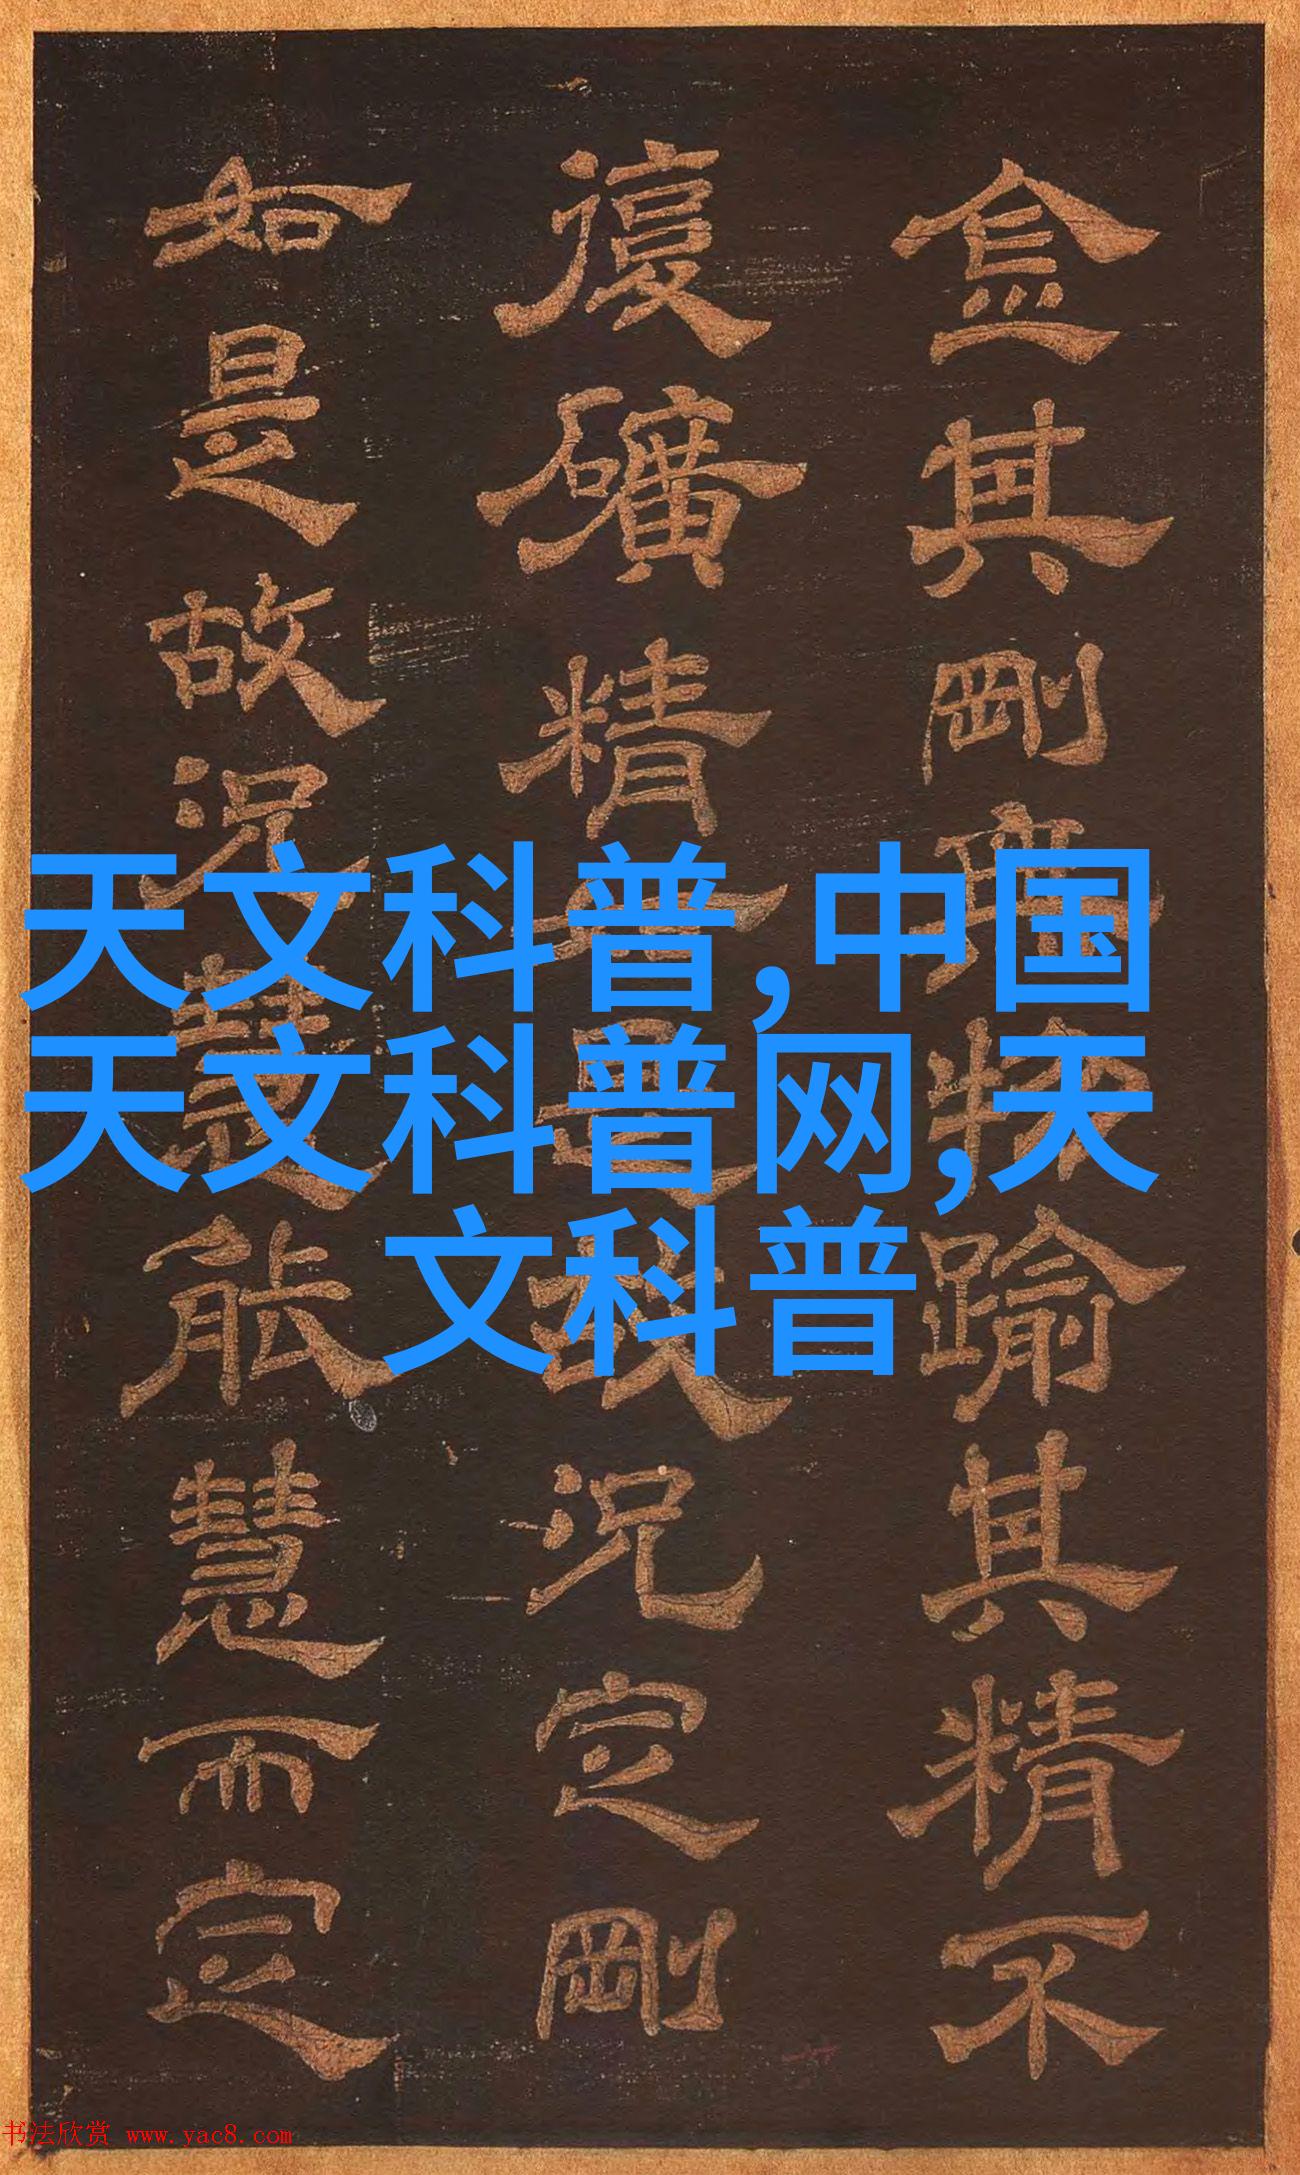 金其剛踰其精不
復礦精是故況定剛
如是故況慧能慧而定
天文科普,中国
天文科普网,天
文科普
书法欣赏 www.yac8.com